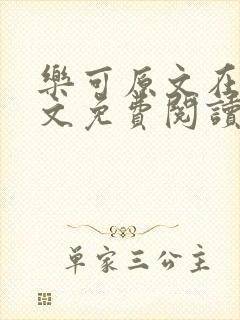 樂可原文在
文免費閱讀
單家三公主